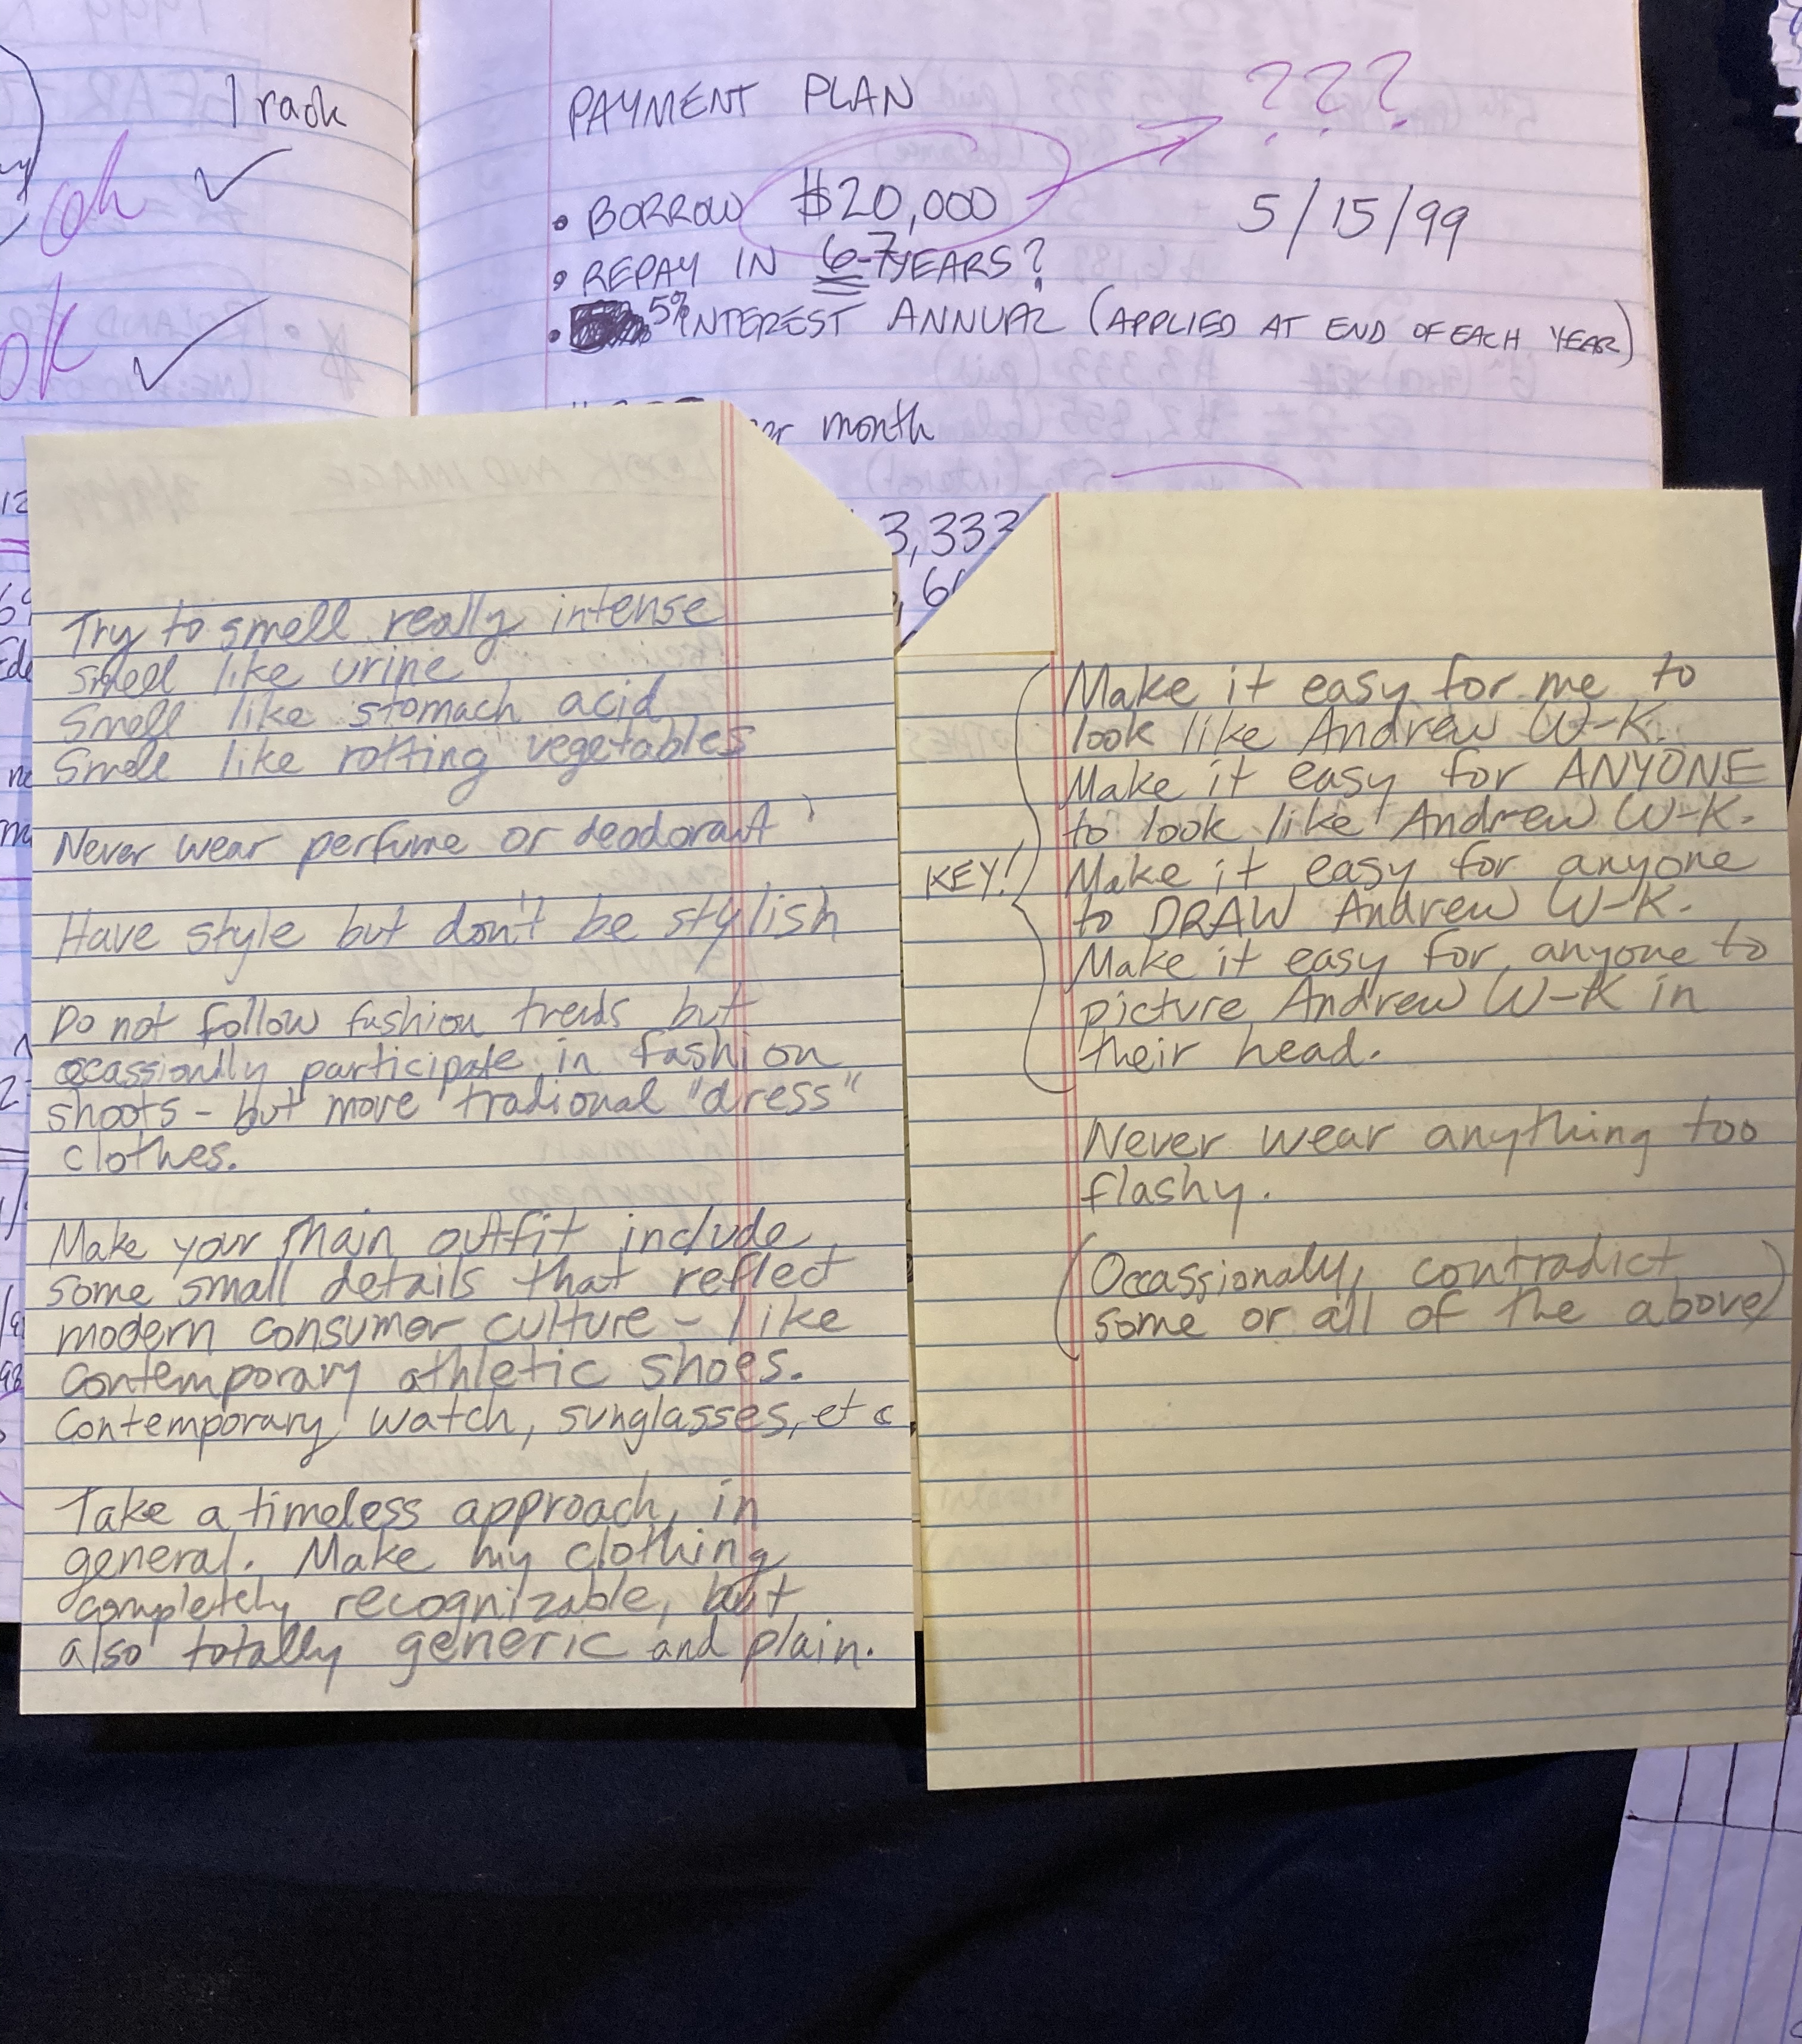 1 rack
oh ✓
ok ✓
PAYMENT PLAN
???
• BORROW $20,000
5/15/99
• REPAY IN 6-7 YEARS?
• 5% INTEREST ANNUAL (APPLIED AT END OF EACH YEAR)
month
3,333
Try to smell really intense
smell like urine
Smell like stomach acid
Smell like rotting vegetables
Never wear perfume or deodorant
Have style but don't be stylish
Do not follow fashion trends but
ocassionally participate in fashion
shoots - but more tradional "dress"
clothes.
Make your main outfit include
some small details that reflect
modern consumer culture - like
contemporary athletic shoes.
Contemporary watch, sunglasses, etc
Take a timeless approach, in
general. Make my clothing
completely recognizable, but
also totally generic and plain.
KEY!
Make it easy for me to
look like Andrew W-K.
Make it easy for ANYONE
to look like Andrew W-K.
Make it easy for anyone
to DRAW Andrew W-K.
Make it easy for anyone to
picture Andrew W-K in
their head.
Never wear anything too
flashy.
(Occassionally, contradict
some or all of the above)